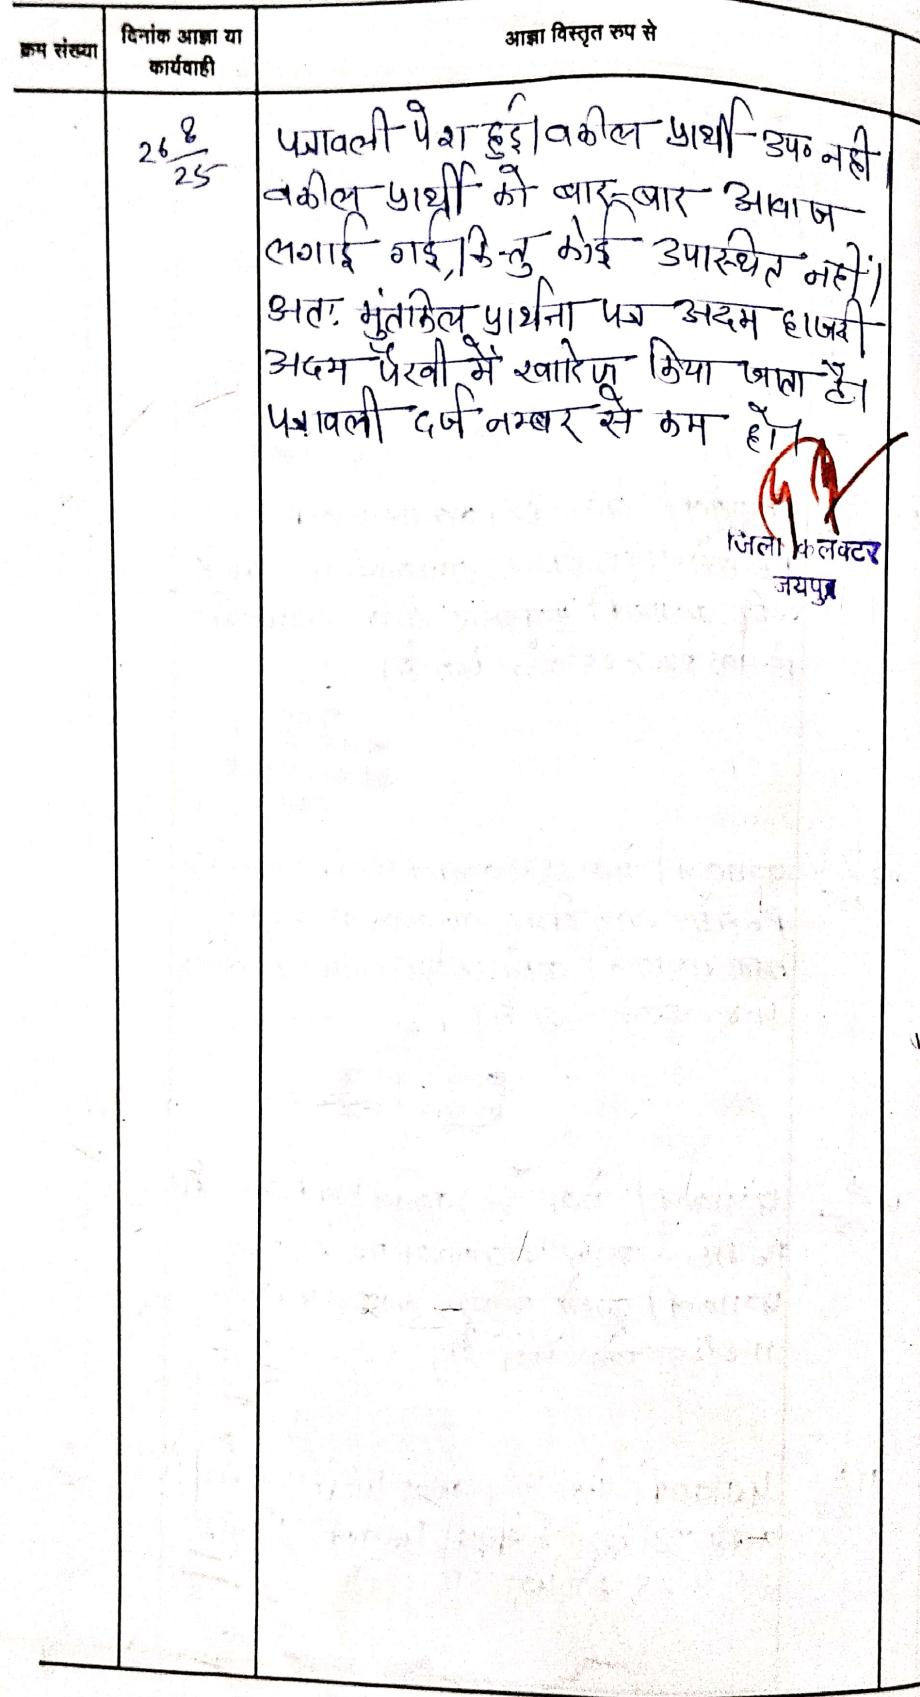 क्रम संख्या
दिनांक आज्ञा या
कार्यवाही
आज्ञा विस्तृत रुप से
26 8/25
पत्रावली पेश हुई। वकील प्रार्थी उप० नही।
वकील प्रार्थी को बार-बार आवाज
लगाई गई, किन्तु कोई उपास्थित नहीं।
अतः मुंतकिल प्रार्थना पत्र अदम हाजरी
अदम पैरवी में खारिज किया जाता है।
पत्रावली दर्ज नम्बर से कम हो।
जिला कलक्टर
जयपुर